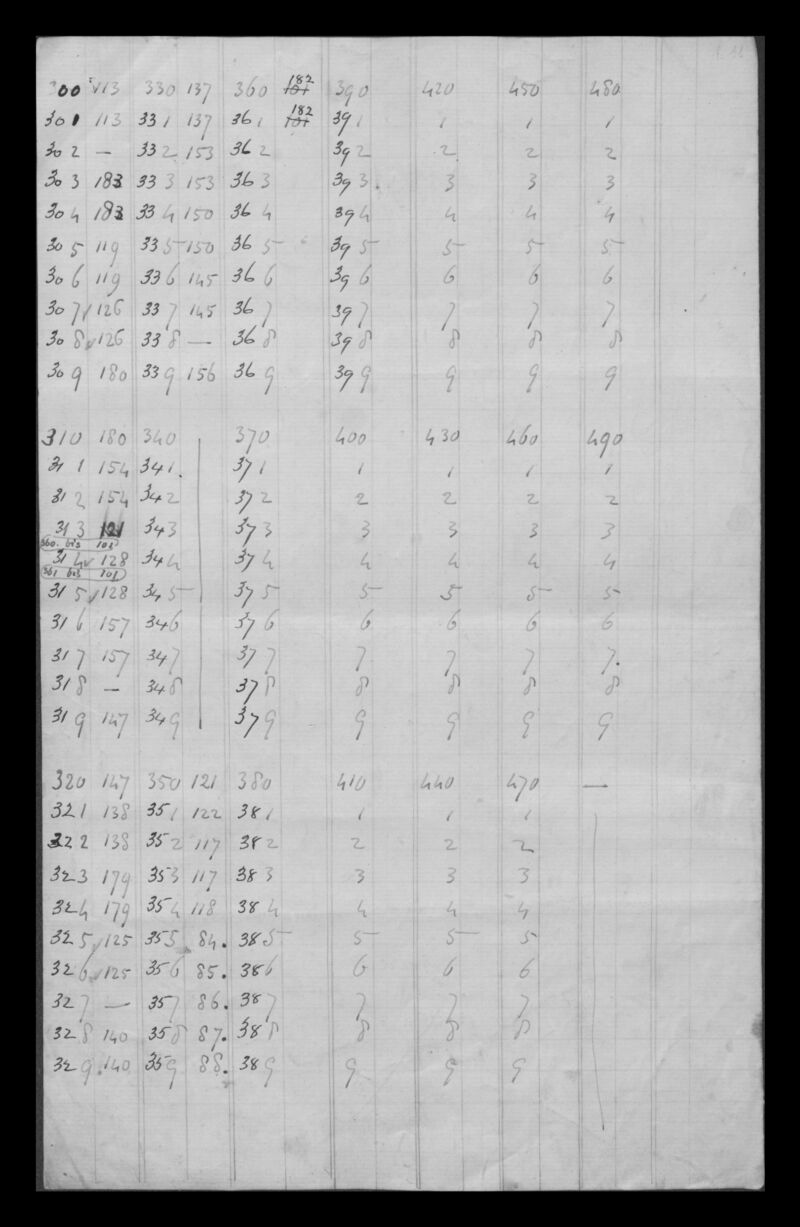 300 √113 330 137 360 182 101 390 420 450 480
301 113 331 137 361 182 101 391 1 1 1
302 — 332 153 362 392 2 2 2
303 183 333 153 363 393. 3 3 3
304 183 334 150 364 394 4 4 4
305 119 335 150 365 395 5 5 5
306 119 336 145 366 396 6 6 6
307 √126 337 145 367 397 7 7 7
308 √126 338 — 368 398 8 8 8
309 180 339 156 369 399 9 9 9
310 180 340 370 400 430 460 490
311 154 341. 371 1 1 1 1
312 154 342 372 2 2 2 2
313 121 343 373 3 3 3 3
360. bis 101
314 √128 344 374 4 4 4 4
361 bis 101
315 √128 345 375 5 5 5 5
316 157 346 376 6 6 6 6
317 157 347 377 7 7 7 7.
318 — 348 378 8 8 8 8
319 147 349 379 9 9 9 9
320 147 350 121 380 410 440 470 —
321 138 351 122 381 1 1 1
322 138 352 117 382 2 2 2
323 179 353 117 383 3 3 3
324 179 354 118 384 4 4 4
325 √125 355 84. 385 5 5 5
326 √125 356 85. 386 6 6 6
327 — 357 86. 387 7 7 7
328 140 358 87. 388 8 8 8
329 140 359 88. 389 9 9 9